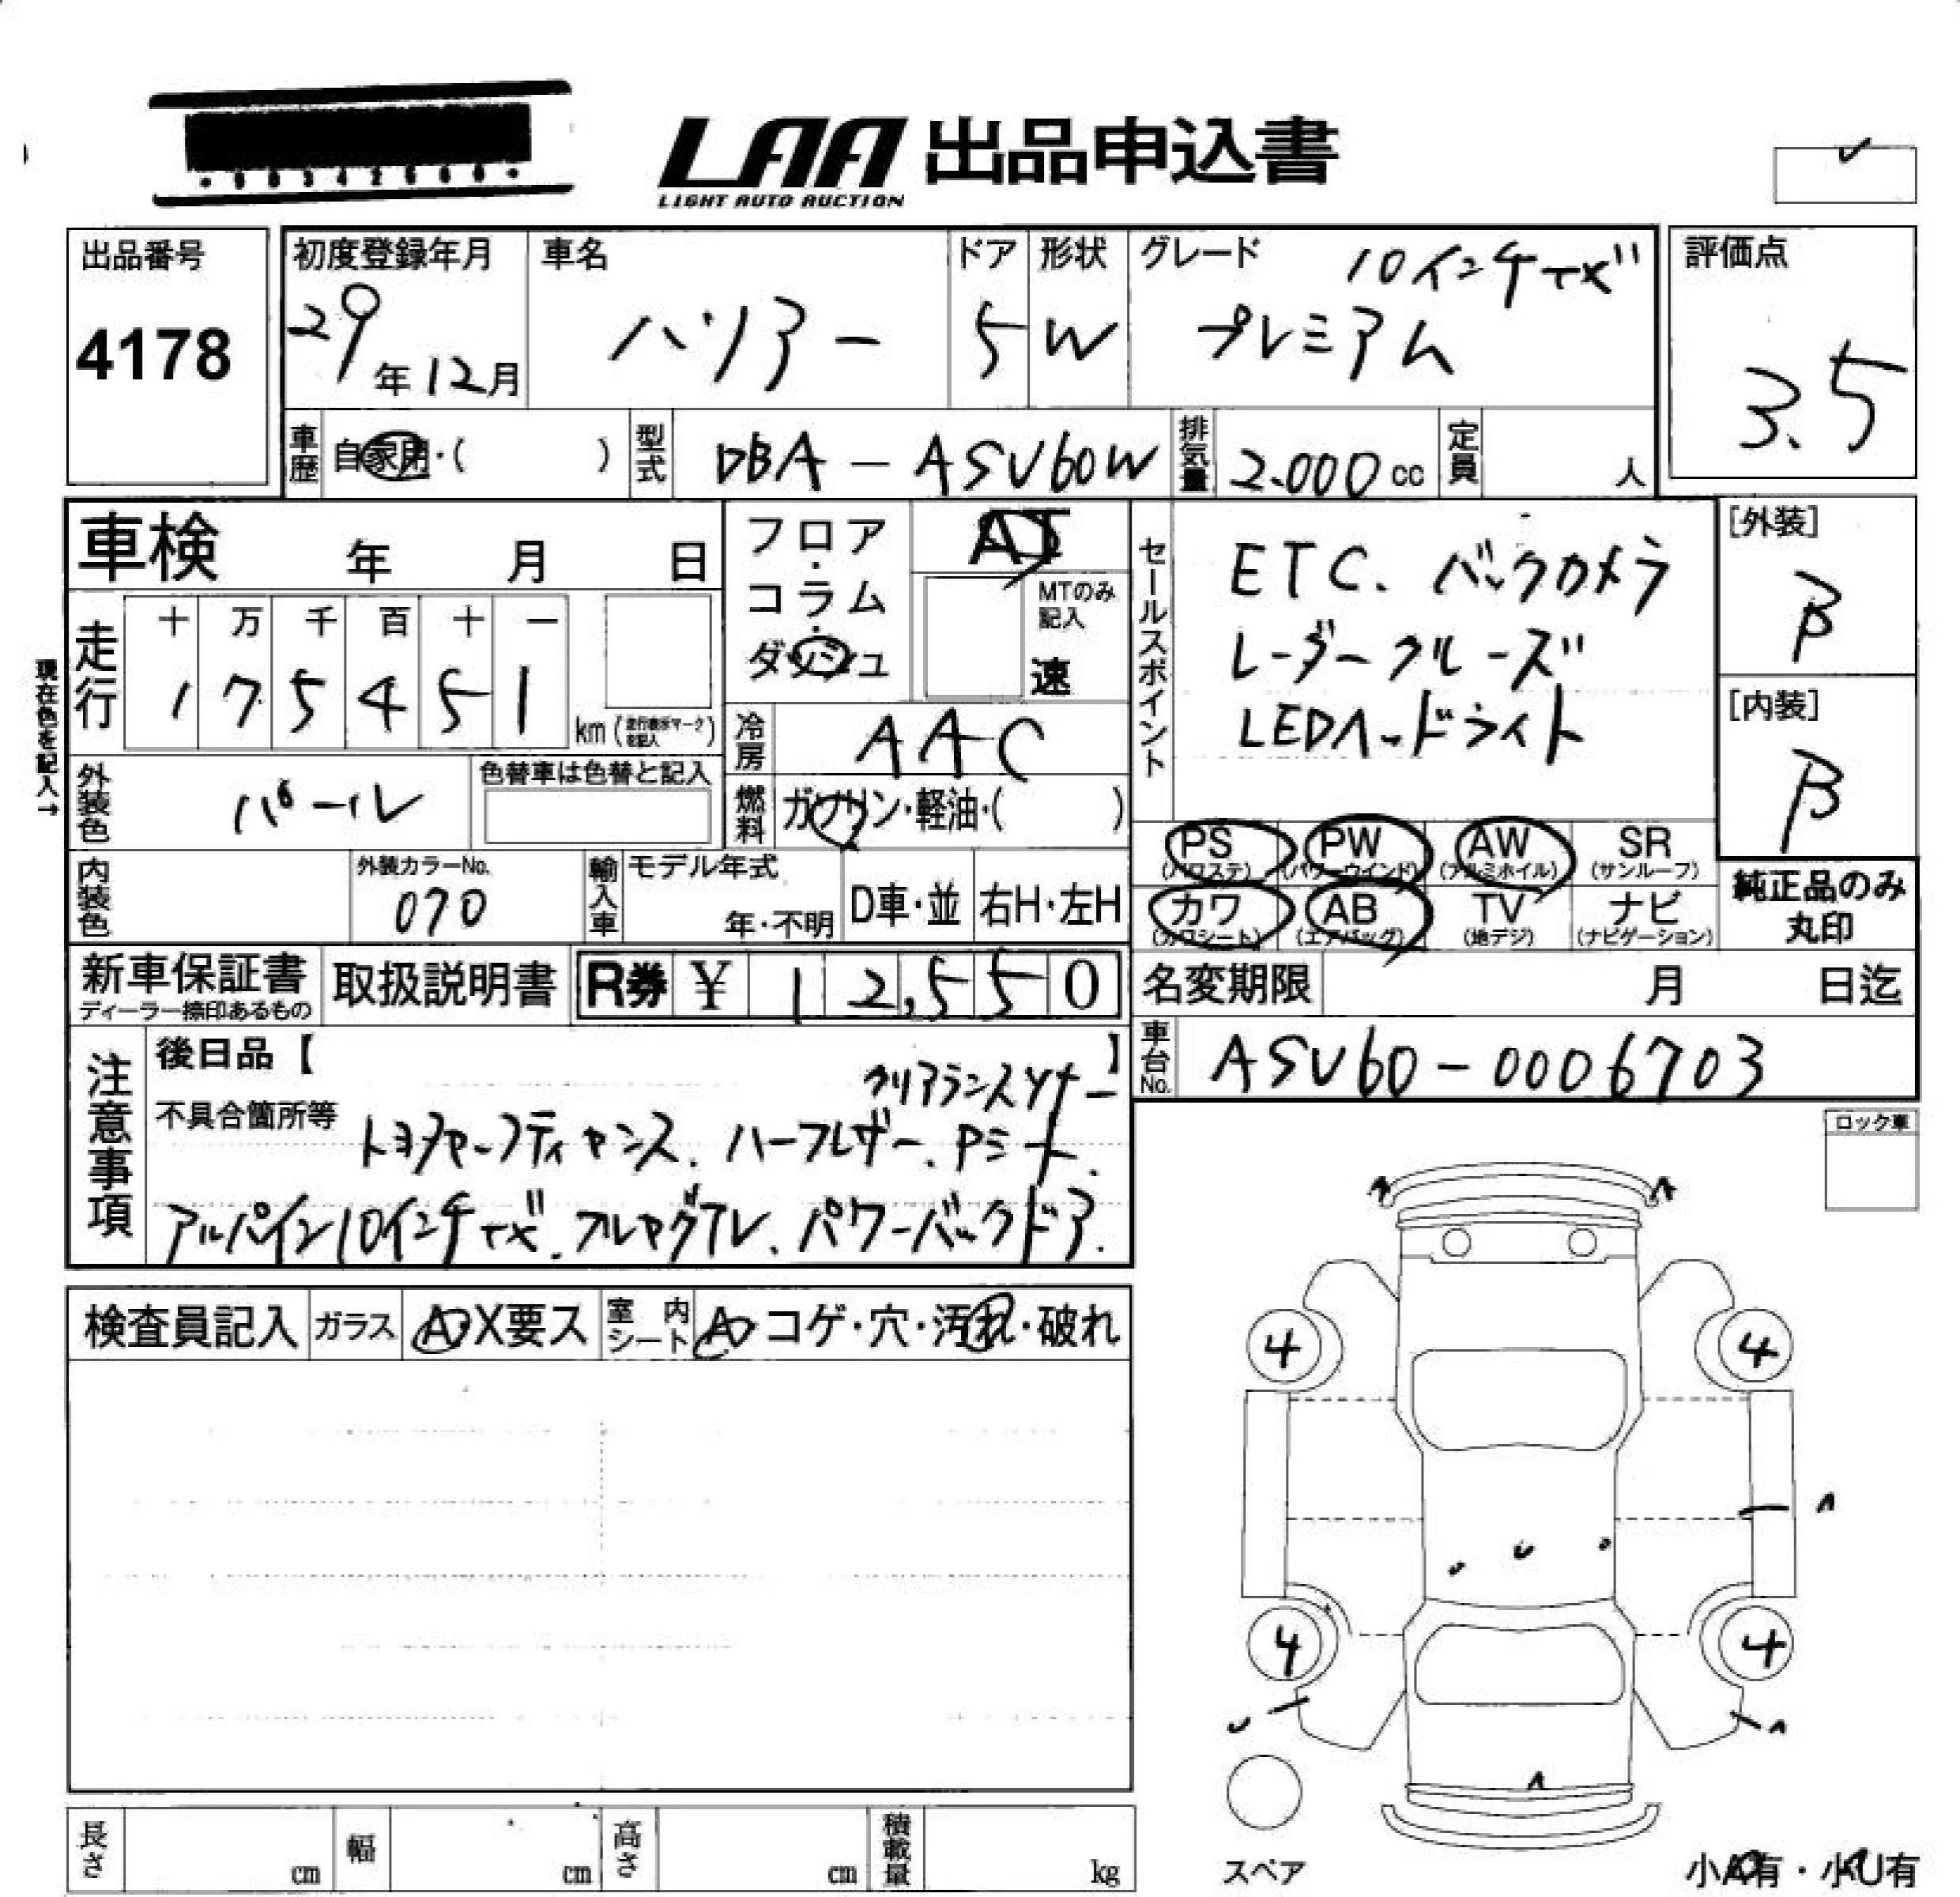 LAA 出品申込書
LIGHT AUTO AUCTION
出品番号
4178
初度登録年月
29年12月
車名
ハリアー
ドア
5
形状
W
グレード
10インチナビ
プレミアム
評価点
3.5
車歴 自家用・( )
型式 DBA-ASU60W
排気量 2.000cc
定員 人
車検 年 月 日
フロア・コラム・ダッシュ
AT
MTのみ記入
速
セールスポイント
ETC. バックカメラ
レーダークルーズ
LEDヘッドライト
[外装]
B
[内装]
B
現在色を記入→
走行
十 万 千 百 十 一
1 7 5 4 5 1
km(走行表示マークを記入)
冷房 AAC
外装色 パール
色替車は色替と記入
燃料 ガソリン・軽油・( )
PS (パワステ)
PW (パワーウインド)
AW (アルミホイル)
SR (サンルーフ)
カワ (カワシート)
AB (エアバッグ)
TV (地デジ)
ナビ (ナビゲーション)
純正品のみ
丸印
内装色
外装カラーNo.
070
輸入車
モデル年式
年・不明
D車・並
右H・左H
新車保証書
ディーラー捺印あるもの
取扱説明書
R券 ¥ 12,550
名変期限 月 日迄
車台No. ASU60-0006703
注意事項
後日品【 】
クリアランスソナー
不具合箇所等
トヨタセーフティセンス. ハーフレザー. Pシート.
アルパイン10インチナビ. フルセグTV. パワーバックドア.
ロック車
検査員記入
ガラス A・X要ス
室内シート A・コゲ・穴・汚れ・破れ
4 4
4 4
スペア
小A有・小U有
長さ cm
幅 cm
高さ cm
積載量 kg